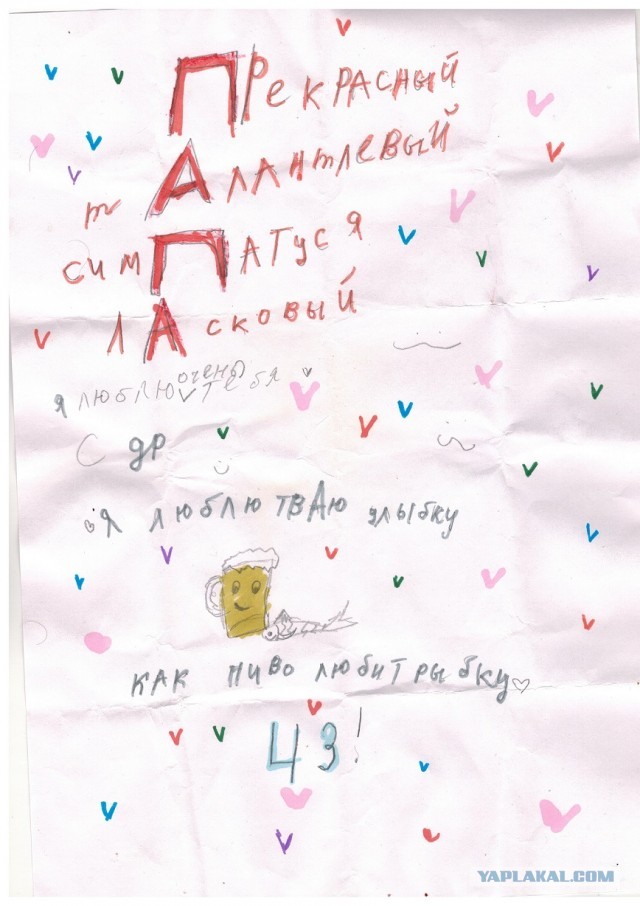 Прекрасный
тАлантлевый
симПАТУСЯ
лАсковый
я люблю очень тебя
С др
я люблю твАю улыбку
как пиво любит рыбку
43!
YAPLAKAL.COM